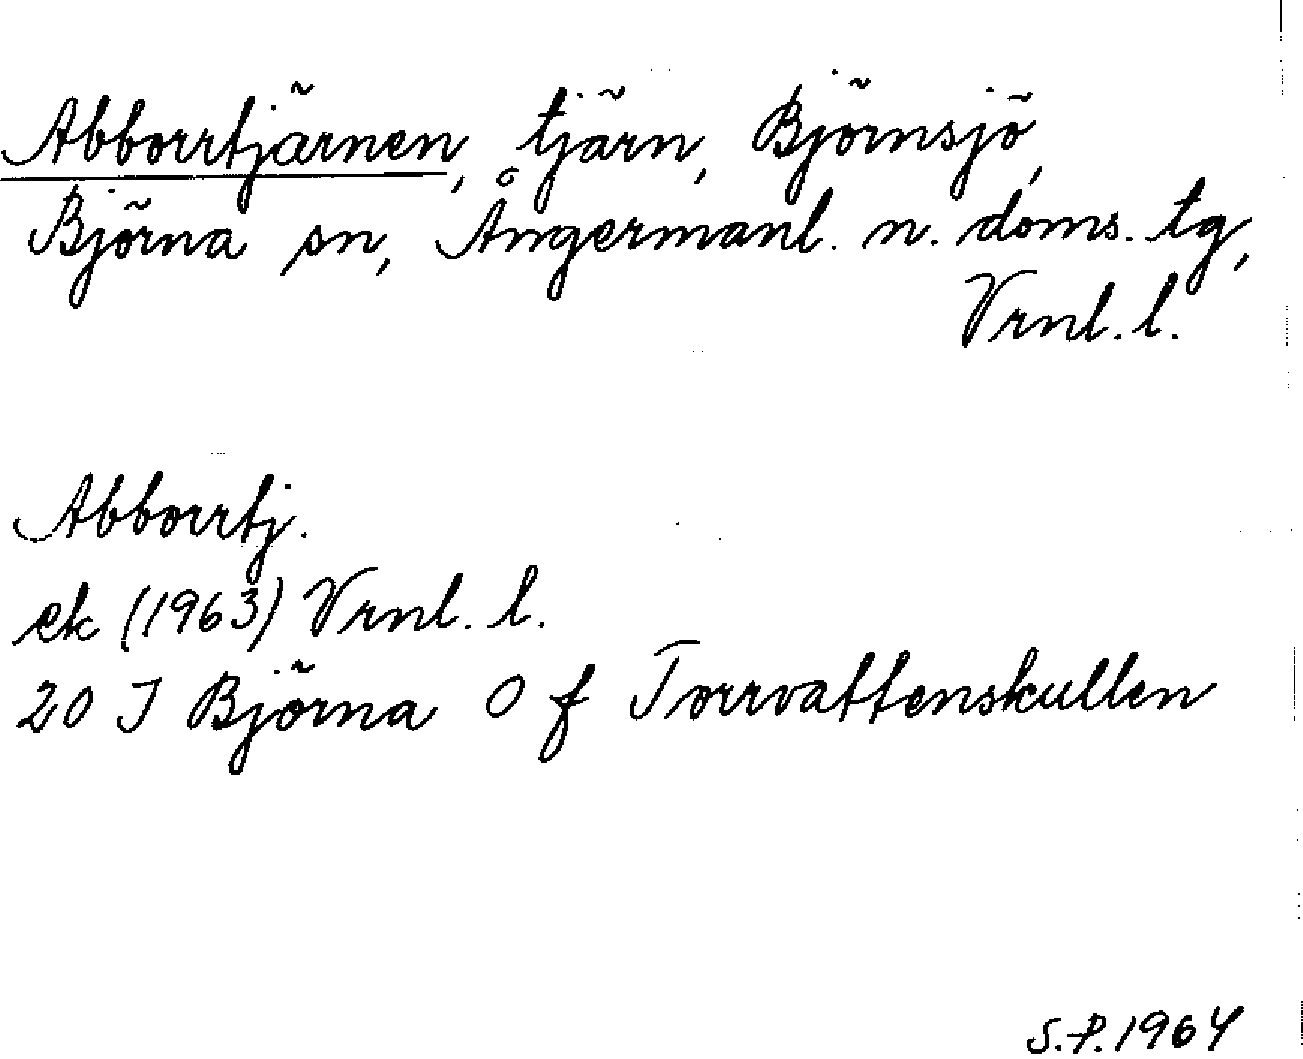 Abborrtjärnen, tjärn, Björnsjö,
Björna sn, Ångermanl. n. doms. tg,
Vrnl. l.
Abborrtj.
ek (1963) Vrnl. l.
20 J Björna O f Torrvattenskullen
S.P. 1964